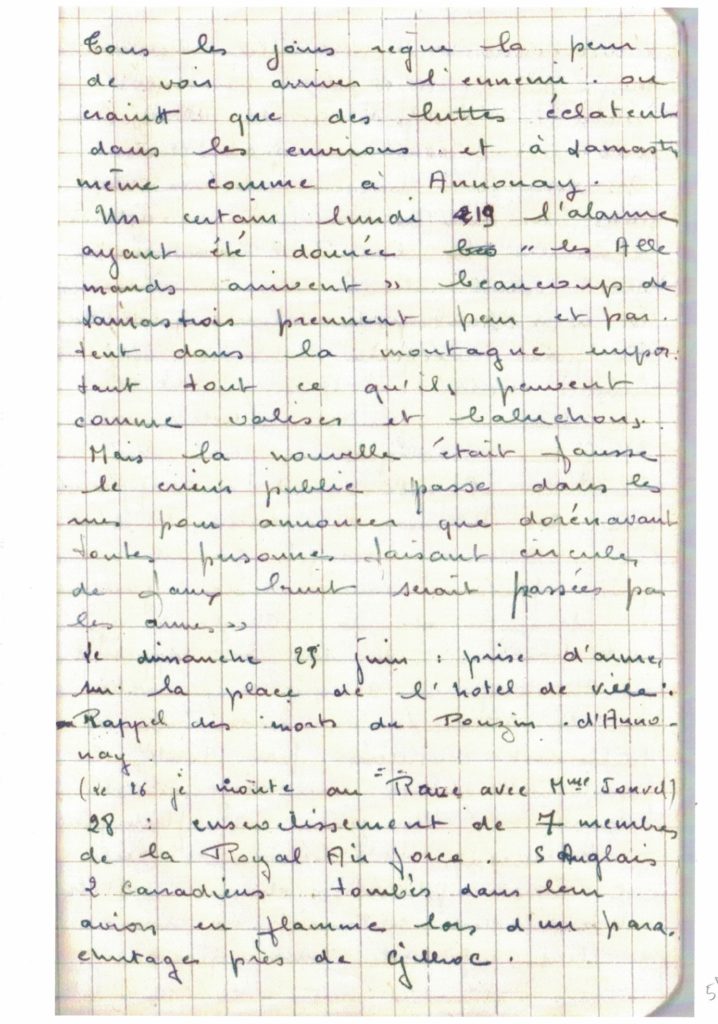 Tous les jours règne la peur
de voir arriver l'ennemi. on
craint que des luttes éclatent
dans les environs. et à Lamastre
même comme à Annonay.
Un certain lundi 19 l'alarme
ayant été donnée " les Alle
mands arrivent " beaucoup de
Lamastrois prennent peur et par.
tent dans la montagne empor.
tant tout ce qu'ils peuvent
comme valises et baluchons.
Mais la nouvelle était fausse
le crieur public passe dans les
rues pour annoncer que dorénavant
toutes personnes faisant circuler
de faux bruit serait passées par
les armes "
Le dimanche 25 juin : prise d'arme,
sur la place de l'hotel de ville.
Rappel des morts du Pouzin. d'Anno-
nay.
(Le 26 je monte au "Roux avec Mme
28 : ensevelissement de 7 membres
de la Royal Air force. 5 Anglais
2 canadiens tombés dans leur
avion en flamme lors d'un para.
chutage près de
5